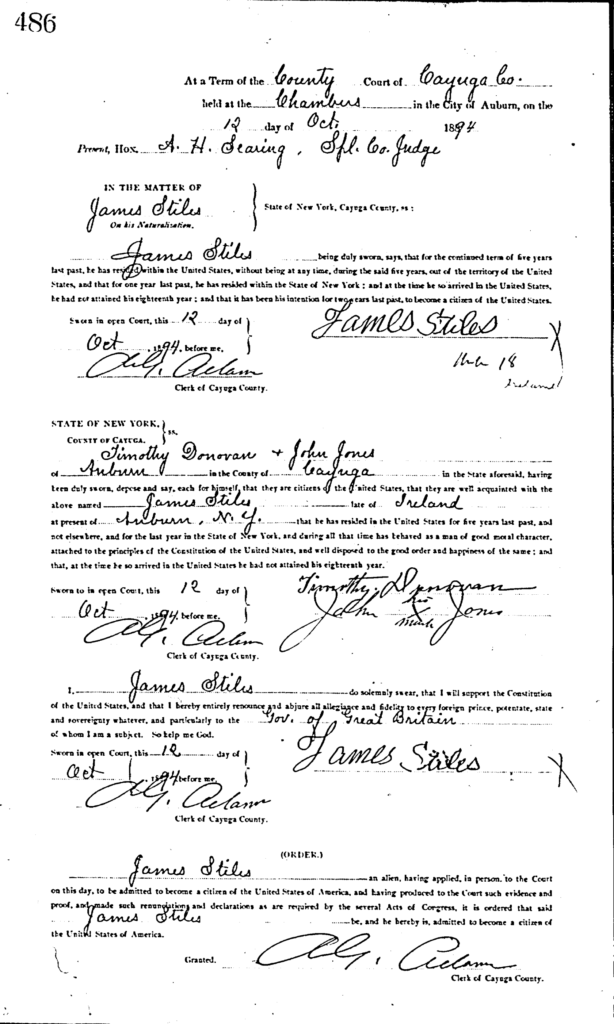 486
At a Term of the County Court of Cayuga Co.
held at the Chambers in the City of Auburn, on the
12 day of Oct. 1894
Present, Hon. A. H. Searing, Spl. Co. Judge
IN THE MATTER OF
James Stiles
On his Naturalization.
State of New York, Cayuga County, ss:
James Stiles being duly sworn, says, that for the continued term of five years
last past, he has resided within the United States, without being at any time, during the said five years, out of the territory of the United
States, and that for one year last past, he has resided within the State of New York; and at the time he so arrived in the United States,
he had not attained his eighteenth year; and that it has been his intention for two years last past, to become a citizen of the United States.
Sworn in open Court, this 12 day of
Oct 1894, before me,
Clerk of Cayuga County.
James Stiles X
18
Ireland
STATE OF NEW YORK,
COUNTY OF CAYUGA. ss.
Timothy Donovan + John Jones
of Auburn in the County of Cayuga in the State aforesaid, having
been duly sworn, depose and say, each for himself, that they are citizens of the United States, that they are well acquainted with the
above named James Stiles late of Ireland
at present of Auburn, N.Y. that he has resided in the United States for five years last past, and
not elsewhere, and for the last year in the State of New York, and during all that time has behaved as a man of good moral character,
attached to the principles of the Constitution of the United States, and well disposed to the good order and happiness of the same; and
that, at the time he so arrived in the United States he had not attained his eighteenth year.
Sworn to in open Court, this 12 day of
Oct 1894, before me,
Clerk of Cayuga County.
Timothy Donovan
his
John X Jones
mark
I, James Stiles do solemnly swear, that I will support the Constitution
of the United States, and that I hereby entirely renounce and abjure all allegiance and fidelity to every foreign prince, potentate, state
and sovereignty whatever, and particularly to the Gov. of Great Britain
of whom I am a subject. So help me God.
Sworn in open Court, this 12 day of
Oct 1894 before me,
Clerk of Cayuga County.
James Stiles X
(ORDER.)
James Stiles an alien, having applied, in person, to the Court
on this day, to be admitted to become a citizen of the United States of America, and having produced to the Court such evidence and
proof, and made such renunciations and declarations as are required by the several Acts of Congress, it is ordered that said
James Stiles be, and he hereby is, admitted to become a citizen of
the United States of America.
Granted.
Clerk of Cayuga County.